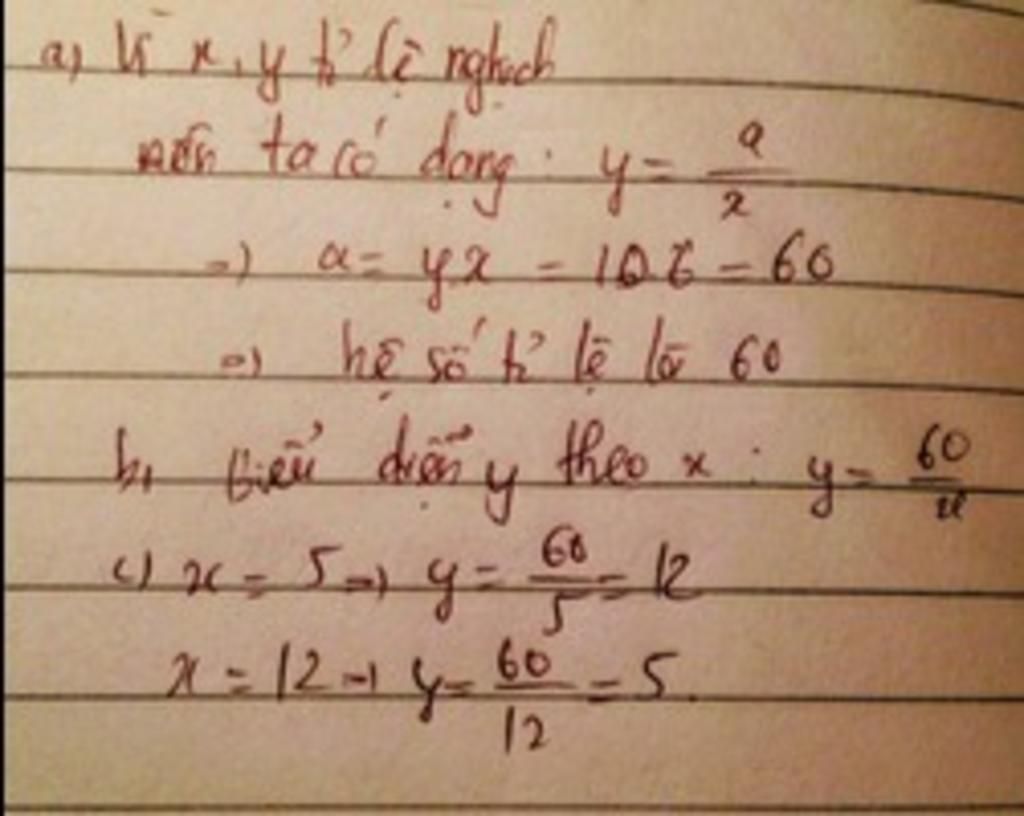 a) Vì x, y tỉ lệ nghịch
nên ta có dạng : y = a/x
=) a = yx = 10.6 = 60
=) hệ số tỉ lệ là 60
b, Biểu diễn y theo x : y = 60/x
c) x = 5 =) y = 60/5 = 12
x = 12 =) y = 60/12 = 5.